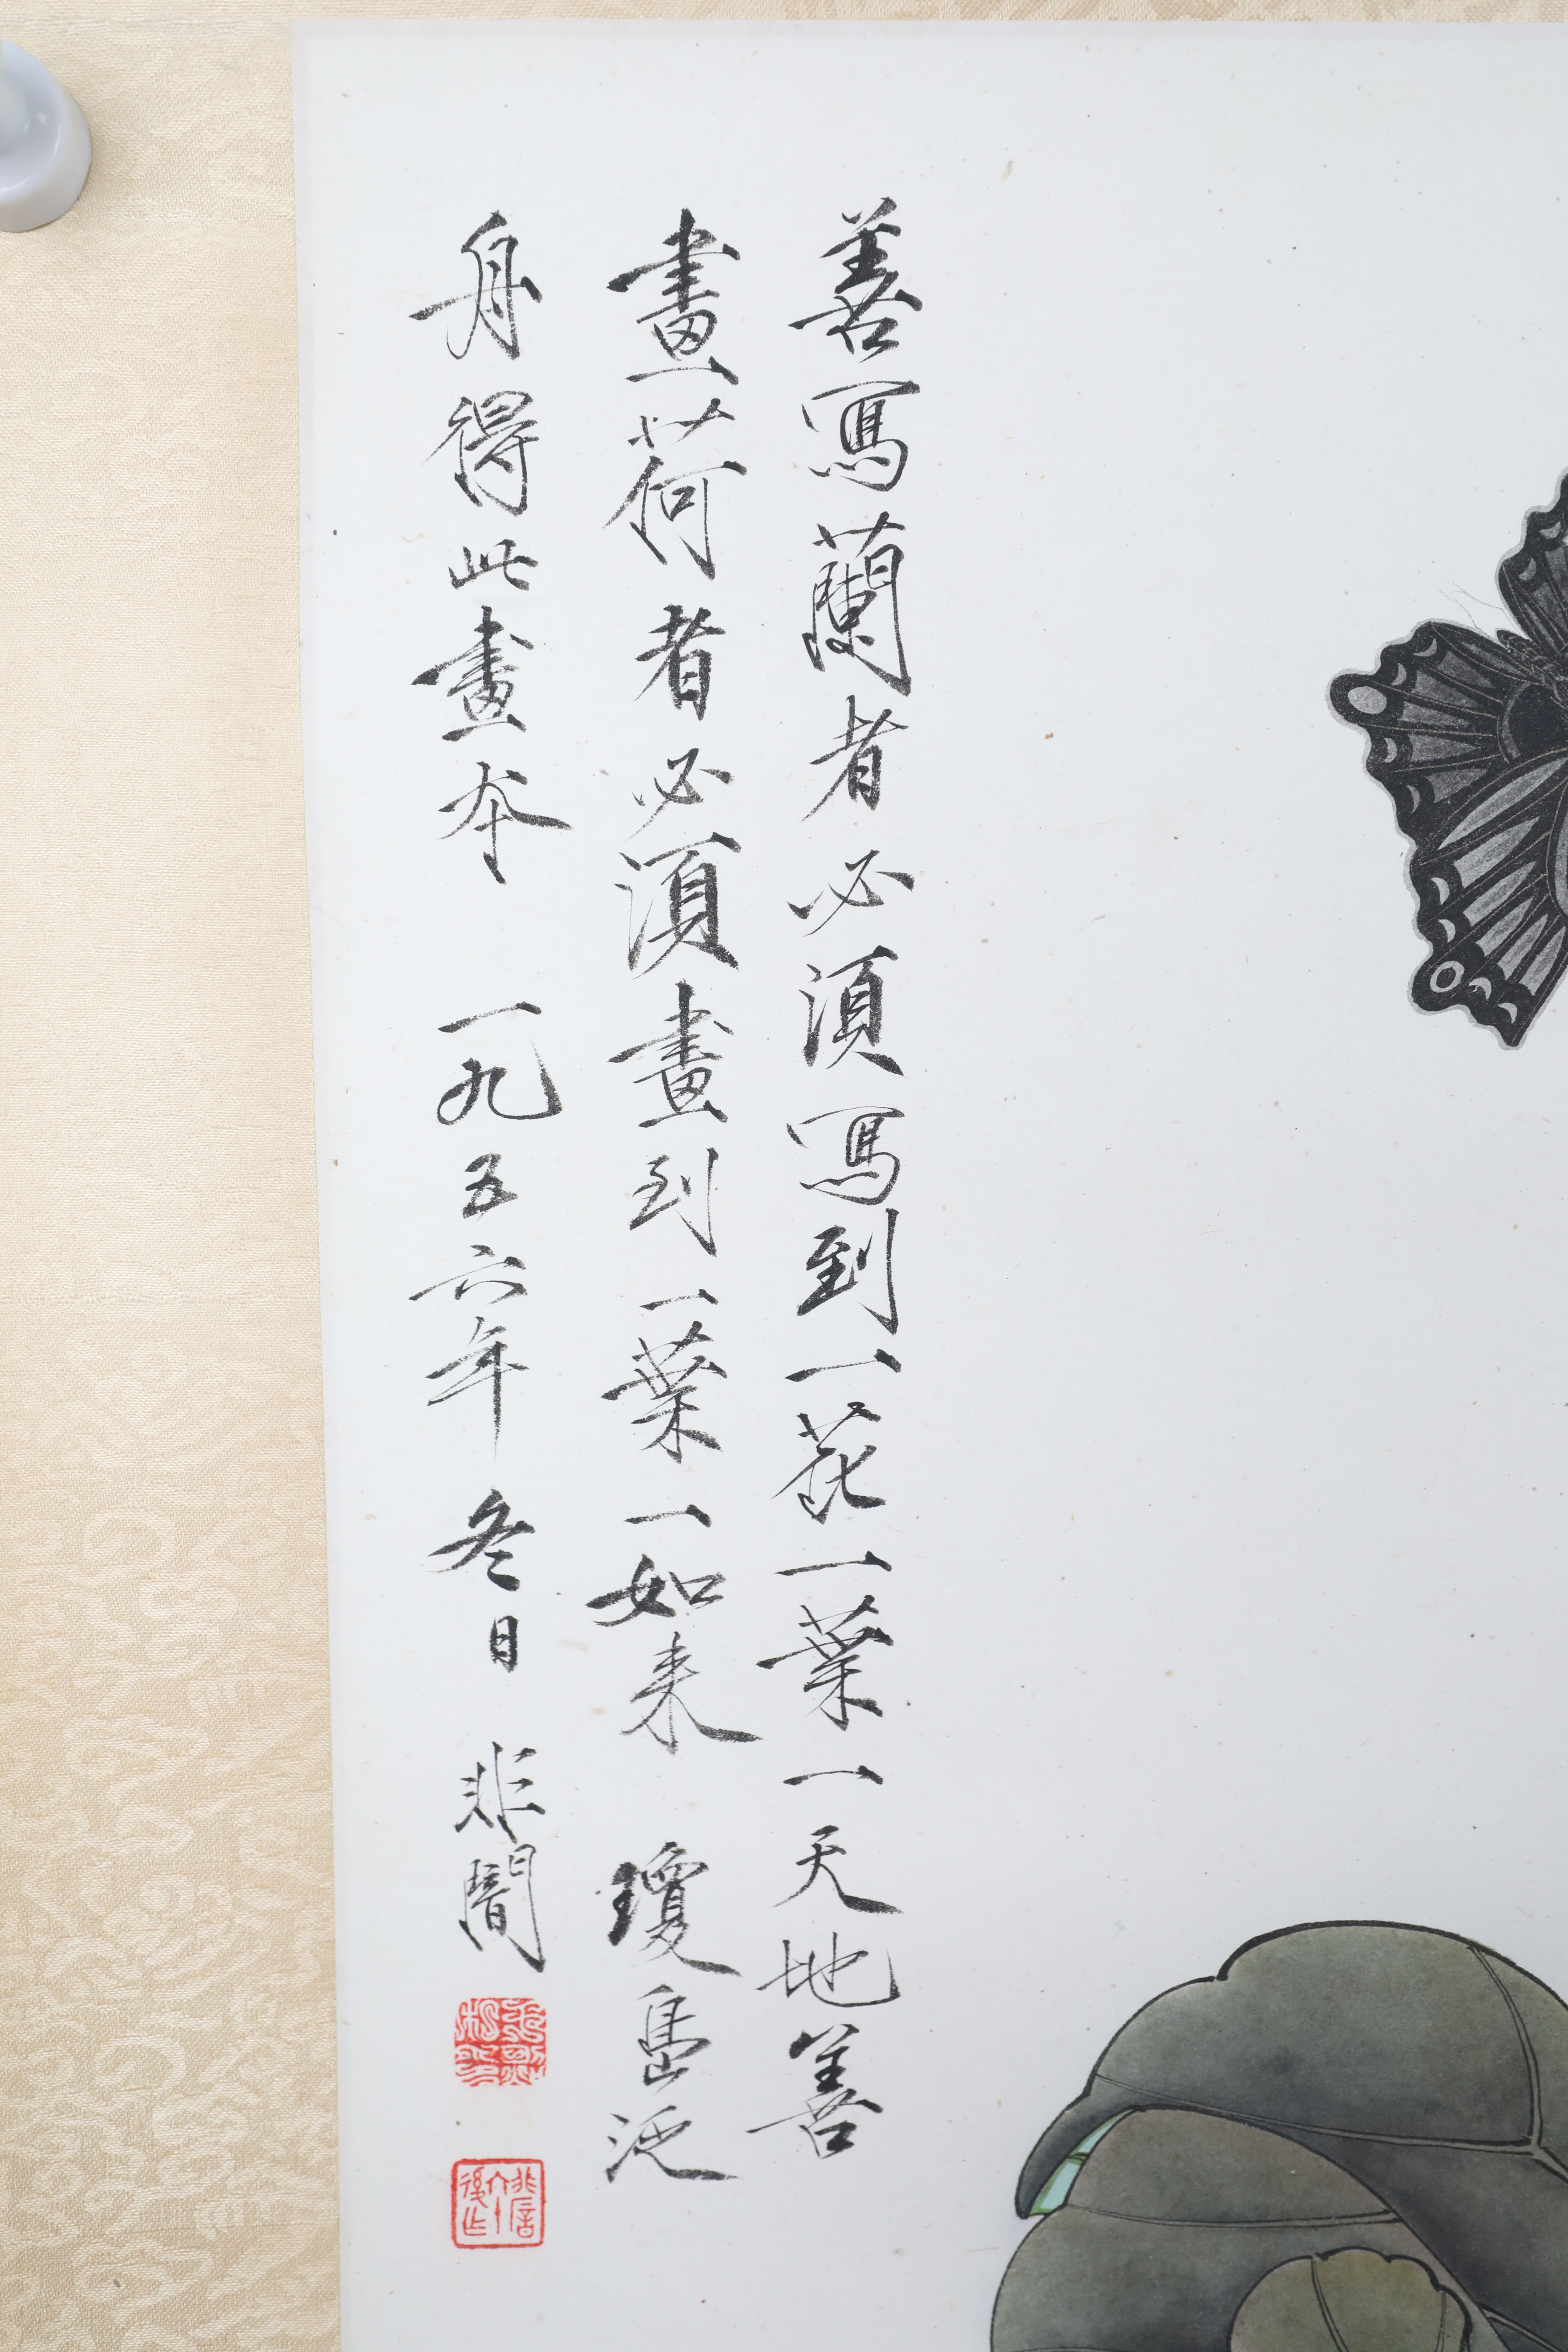 善寫蘭者必須寫到一花一葉一天地善
畫荷者必須畫到一葉一如来瓊島泛
舟得此畫本一九五六年冬日非闇